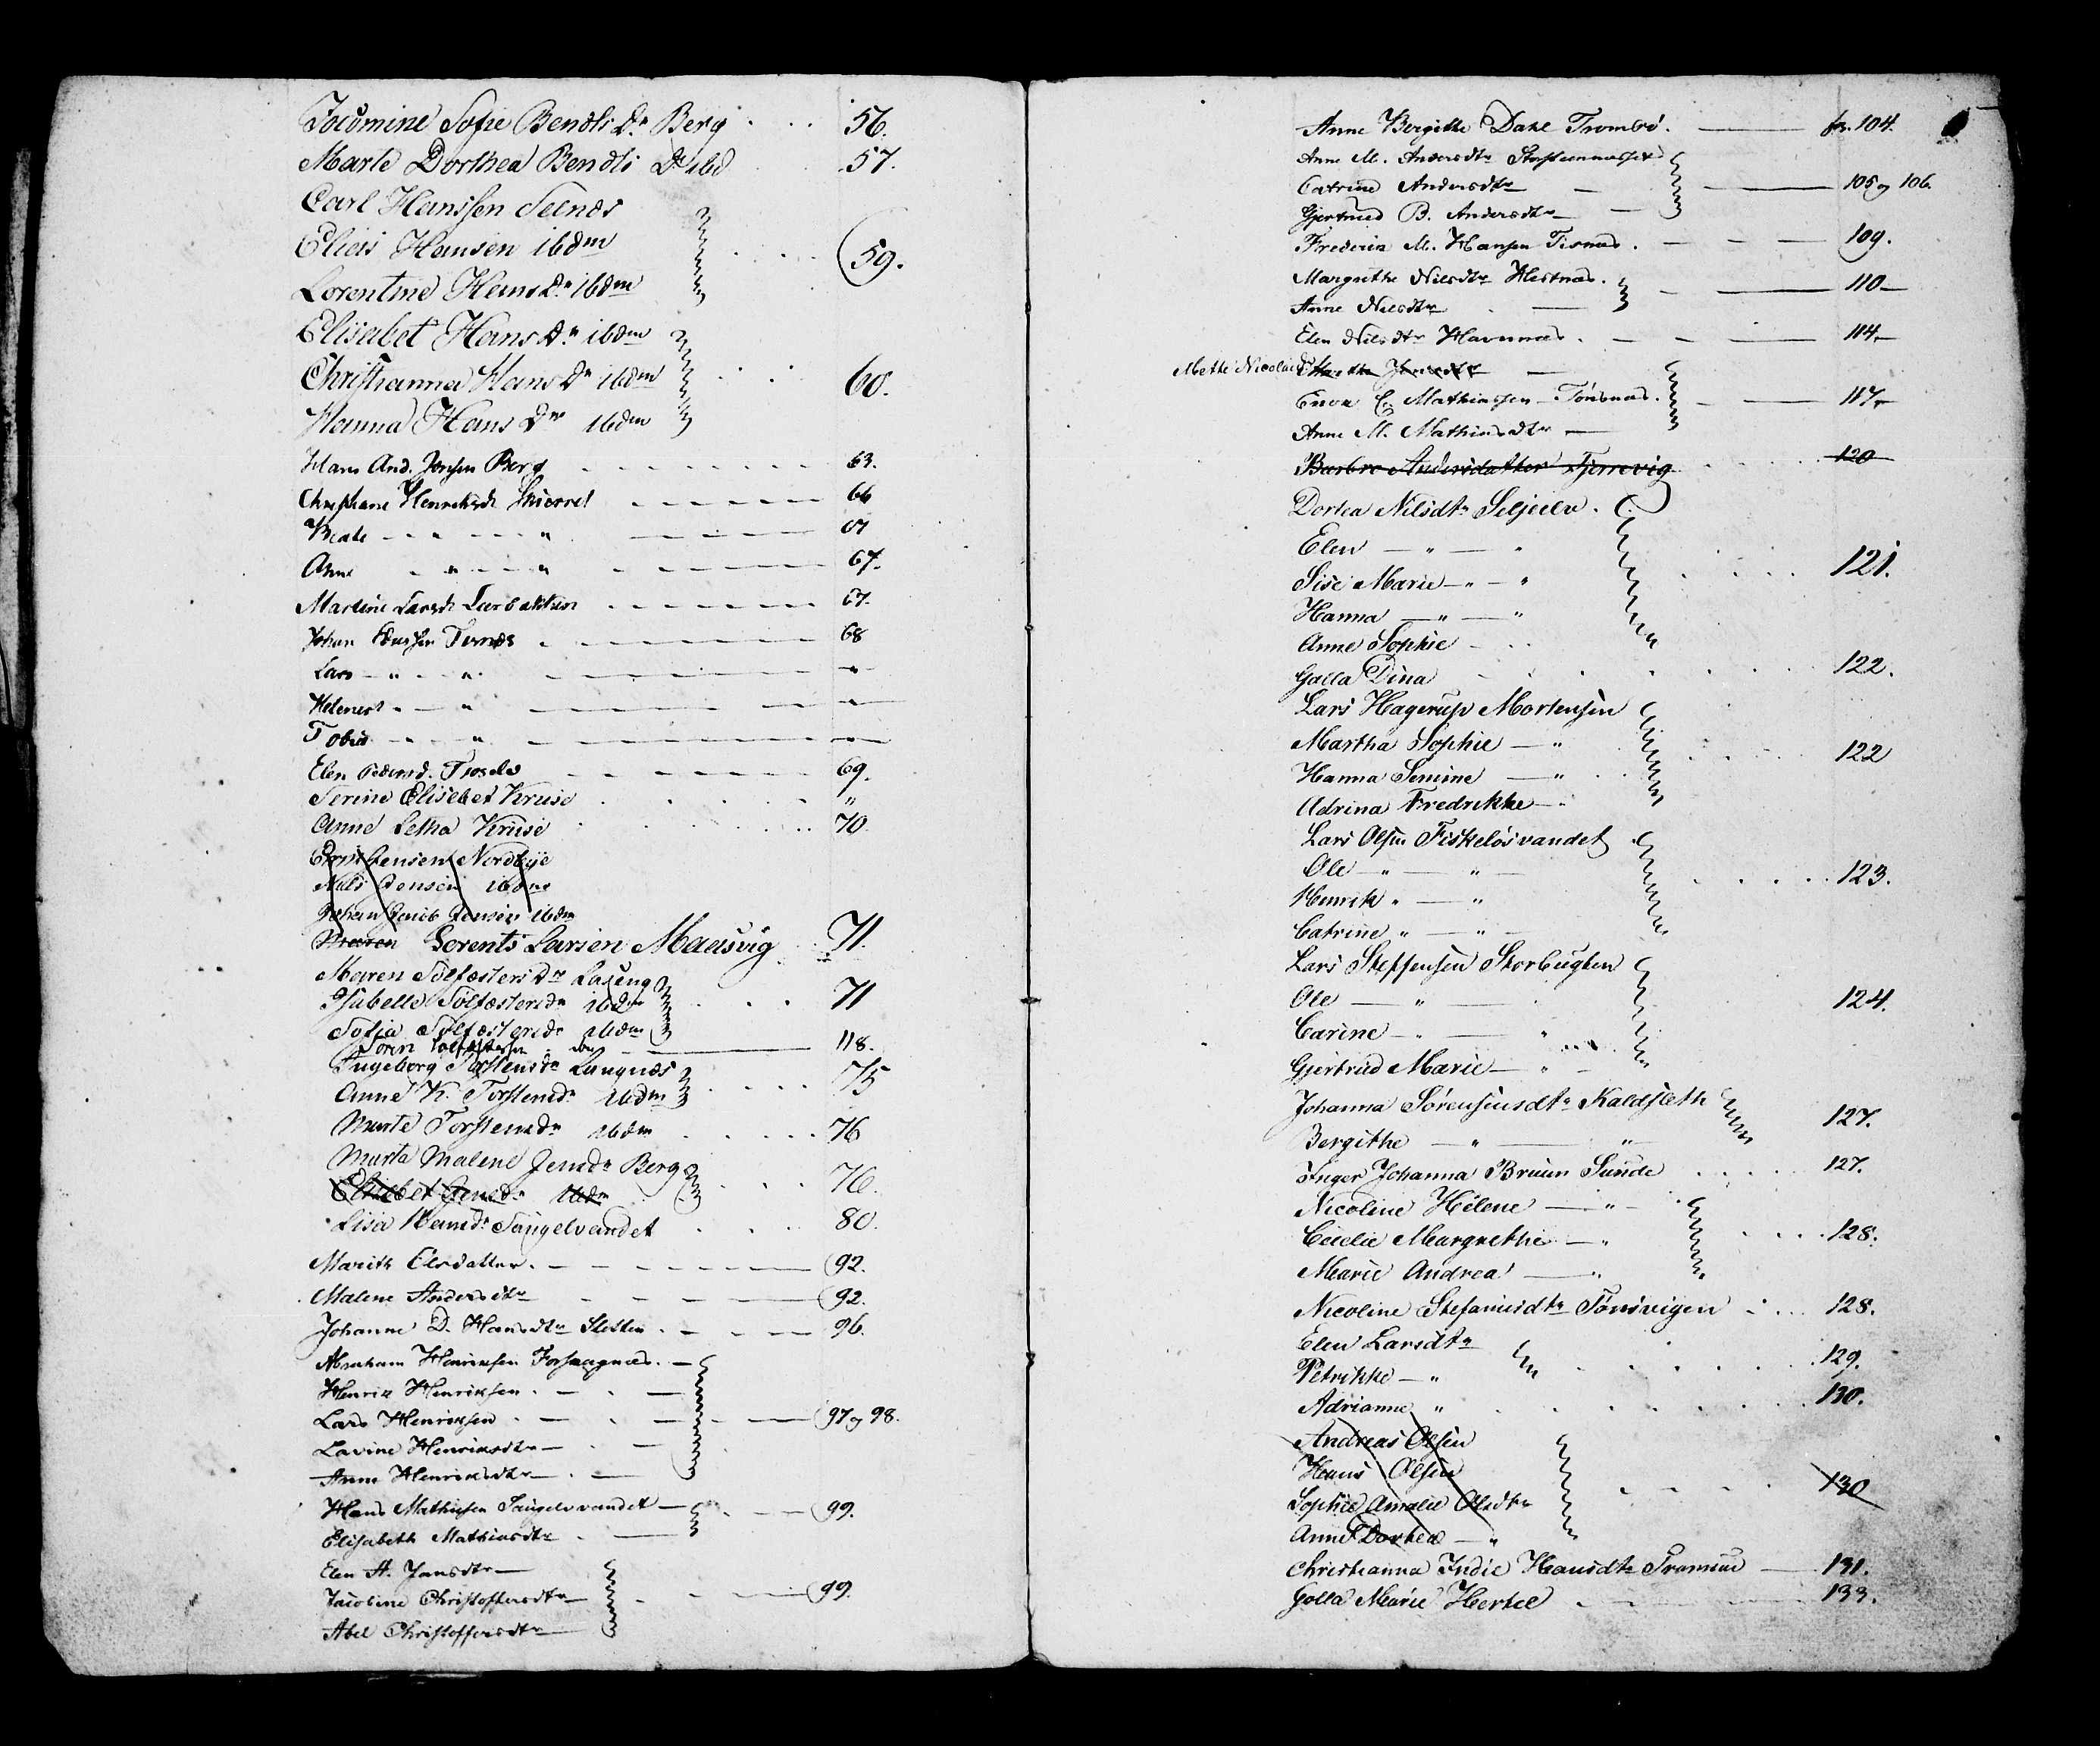 Jocomine Sofie Bendts Dr Berg . . . 56.
Marte Dorthea Bendts Dr ibd 57.
Carl Hanssen Selnes
Elias Hansen ibdm . . . 59.
Lorentine Hans Dr ibdm
Elisabet Hans Dr ibdm
Christianna Hans Dr ibdm . . . 60.
Hanna Hans Dr ibdm
Hans And. Jonsen Berg 63.
Christiane Henriksdr 66
Beate - " - " 67
Anne - " - " 67.
Martine Larsdr 67.
Johan Ternes 68
Lars - " - " "
" - " "
Tobias - " - " "
Elen Pedersd. 69.
Serine Elisebet Kruse "
Anne Letha Kruse 70.
Jensen Nordbye
Nils Jensen ibdm
Johan Jacob Jensen ibdm
Maren Lorents Larsen Maasvig 71.
Maren Sølfæsters Dr
Isabelle Sølfæstersdr ibdm . . . 71
Sofia Sølfæstersdr ibdm
Sørin Solfæstersen do 118.
Ingeborg Torstensdr Langnæs
Anne K. Torstensdr ibdm . . . 75
Marte Torstensdr ibdm . . . 76
Marta Malene Jensdr Berg . . . 76.
Elisebet Jensdr ibdm
Lisa Hansdr Saugelvandet . . . 80.
Marith Olsdatter. 92.
Malene Andersdtr 92.
Johanne D. Hansdtr Sletten 96.
Abraham Henriksen
Henrik Henriksen
Lars Henriksen 97 og 98.
Lavine Henriksdtr
Anne Henriksdtr
Hans Mathisen Saugelvvandet 99.
Elisabeth Mathiasdtr
Elen H. Jansdtr
Jacobine Christoffersdtr 99.
Abel Christoffersdtr
Anne Bergithe Dahl Tromsø. 104.
Anne M. Andersdtr
Catrine Andersdtr 105 og 106.
Gjertrued B. Andersdtr
Frederik M. Hansen 109.
Margrethe Nilsdtr Hestnæs. 110
Anne Nilsdtr
Elen Nilsdtr Havnnæs. 114
Mette Nicolai
Enok E. Mathiassen Tønsnæs. 117
Anne M. Mathiasdtr
Barbro Andersdatter Tjerrevig 120
Dortea Nilsdtr Seljeelv.
Elen - " - "
Sise Marie - " - " 121.
Hanna - " - "
Anne Sophie
Golla Dina 122.
Lars Hagerup Mortensen
Martha Sophie - " 122
Hanna Semine - "
Adrina Fredrikke - "
Lars Olsen Fiskeløsvandet
Ole - " - " 123.
Henrik " - "
Catrine " - "
Lars Steffensen Storbugten
Ole - " 124.
Carine - " "
Gjertrud Marie - " -
Johanna Sørensensdtr Kaldsleth
Bergithe - " - " 127.
Inger Johanna Bruun Sunde 127.
Nicoline Helene - " -
Cecilie Margrethe - " 128.
Marie Andrea - "
Nicoline Stefansdtr Tønsvigen 128.
Elen Larsdtr
Petrikke - " 129.
Adrianne " 130.
Andreas Olsen
Hans Olsen 130
Sophie Amalie Olsdtr
Anne Dorthea - "
Christianna Indie Hansdtr Tromsøe 131.
Golla Marie Hertel 133.